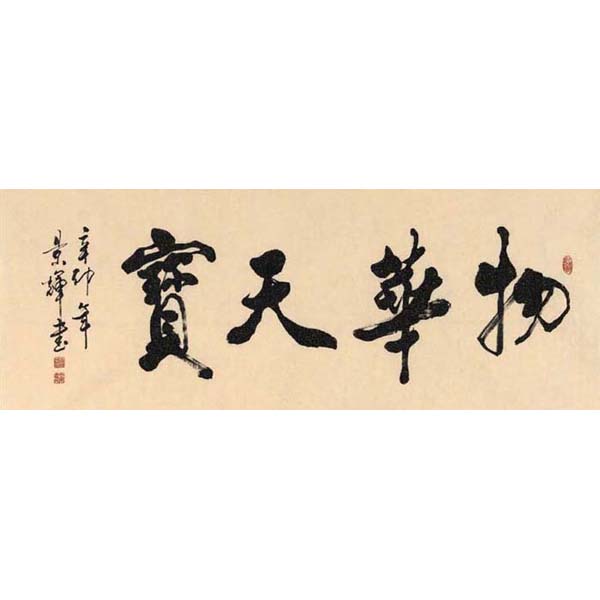 物華天寶
辛卯年
景輝書